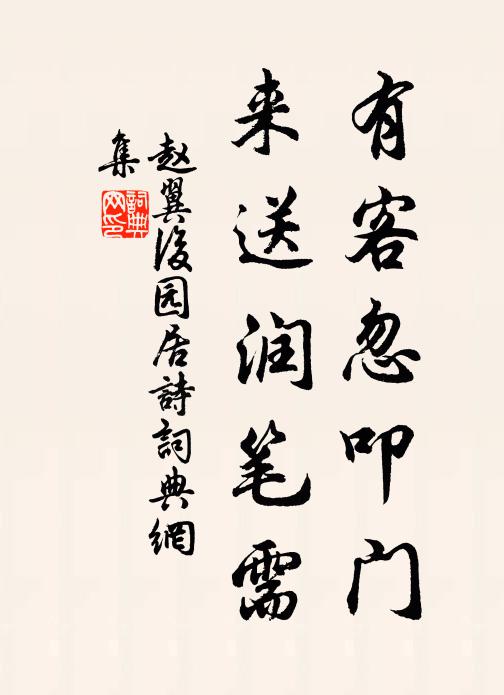 有客忽叩门
来送润笔需
赵翼後园居詩詞典網
集
詞典
网印